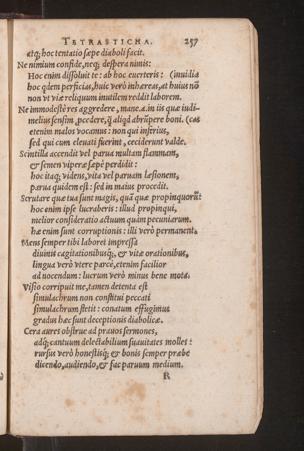 TETRASTICHA. 257
atq; hoc tentatio sæpe diaboli facit.
Ne nimium confide, neq; despera nimis:
Hoc enim dissoluit te: ab hoc euerteris: (inuidia
hoc qdem perficias, huic verò inhæreas, at huius nō
non vt viæ reliquum inutilem reddit laborem.
Ne immodestè res aggredere, mane. a in tis quæ iudi-
melius sensim ,pcedere, ꝗ̃ aliqd abrūpere boni. (cas
etenim malos vocamus: non qui inferius,
sed qui cum eleuati fuerint, ceciderunt valde.
Scintilla accendit vel parua multam flammam,
& semen viperæ sæpè perdidit:
hoc itaq; videns, vita vel paruam læsionem,
parua quidem est: sed in maius procedit.
Scrutare quæ tua sunt magis, quā quæ propinquorū:
hoc enim ipse lucraberis: illud propinqui,
melior consideratio actuum quàm pecuniarum.
hæ enim sunt corruptionis: illi verò permanent.
Mens semper tibi laboret impressa
diuinis cogitationibusq;, & vitæ orationibus,
lingua verò vtere parcè, etenim facilior
ad nocendum: lucrum verò minus bene mota.
Visio corripuit me, tamen detenta est
simulachrum non constitui peccati
simulachrum stetit: conatum effugimus
gradus hæc sunt deceptionis diabolicæ.
Cera aures obstrue ad prauos sermones,
adq; cantuum delectabilium suauitates mollet:
rursus verò honestisq; & bonis semper præbe
dicendo, audiendo, & fac paruum medium.
R